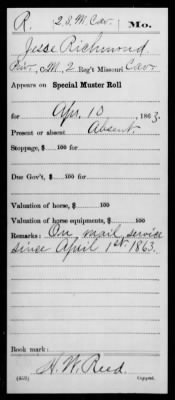 R. 2 S.M. Cav. Mo.
Jesse Richmond
Priv., Co. M, 2 Reg't Missouri Cav.
Appears on Special Muster Roll
for Apr. 10, 1863.
Present or absent Absent
Stoppage, $ 100 for
Due Gov't, $ 100 for
Valuation of horse, $ 100
Valuation of horse equipments, $ 100
Remarks: On mail service
since April 1st 1863.
Book mark:
H. W. Reed.
(859) Copyist.